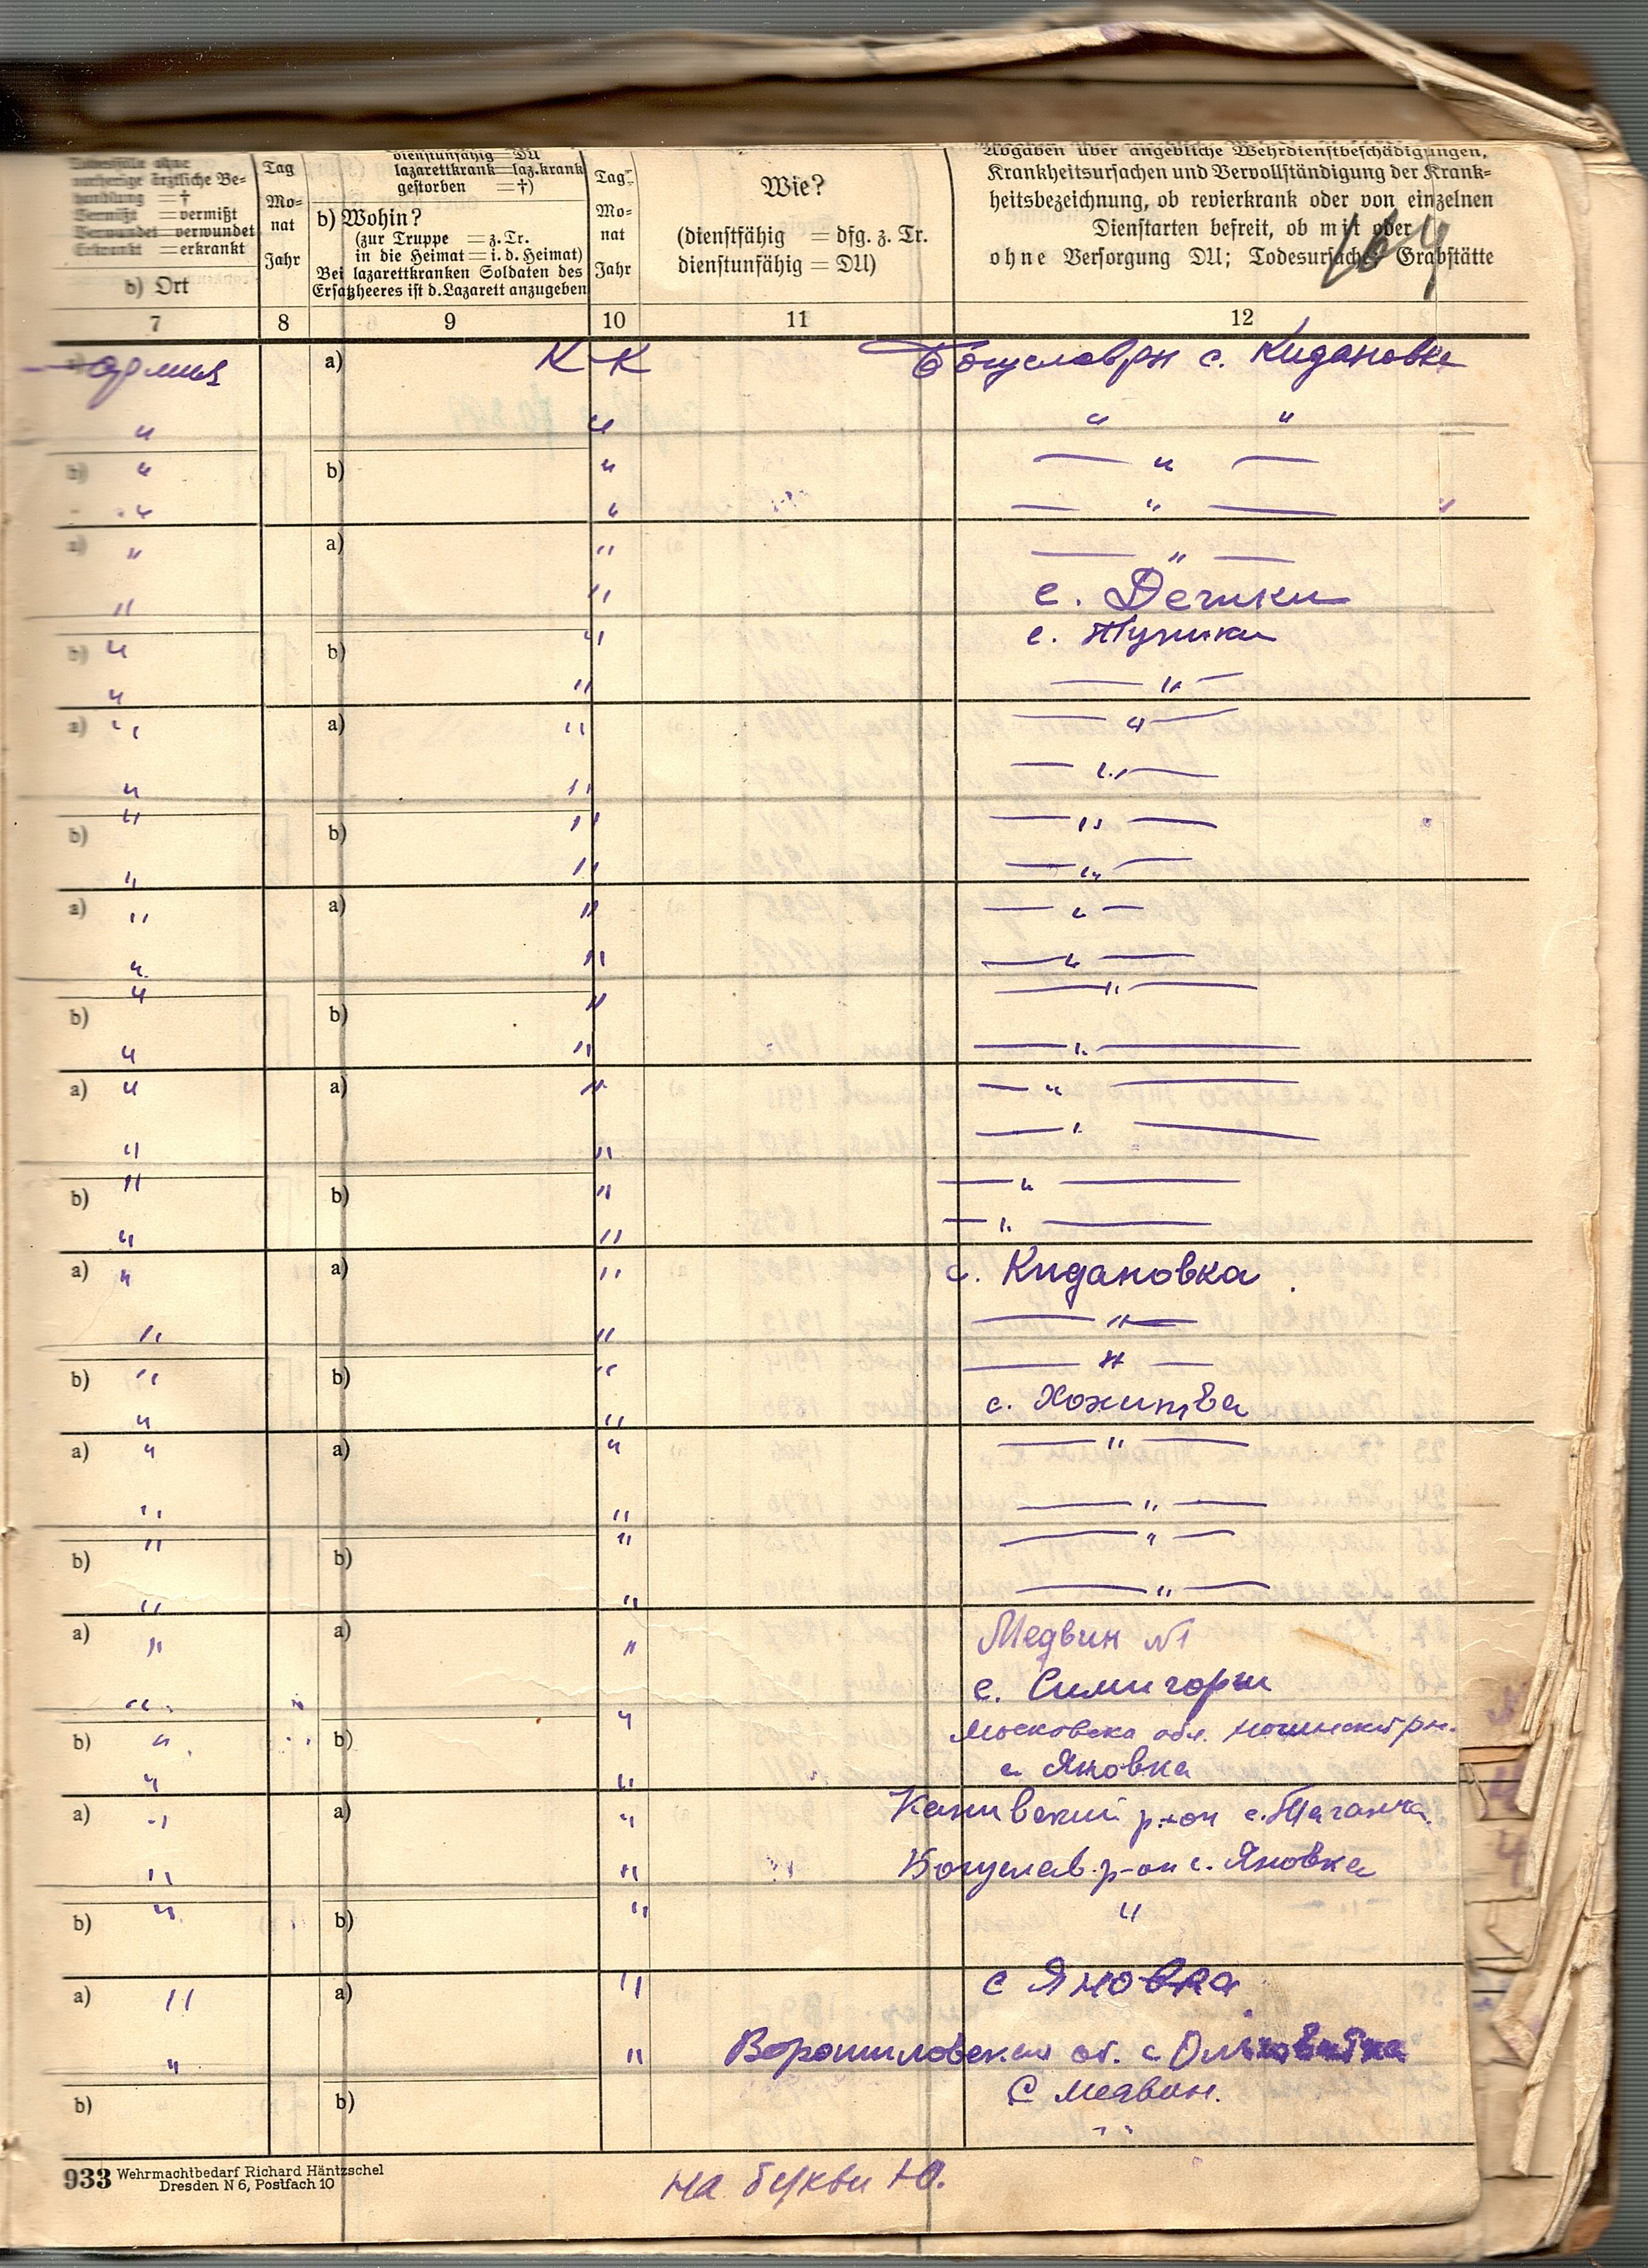 Todesfälle ohne
vorherige ärztliche Be-
handlung = †
Vermißt = vermißt
Verwundet = verwundet
Erkrankt = erkrankt
b) Ort
Tag
Mo-
nat
Jahr
dienstunfähig = DU
lazarettkrank = laz. krank
gestorben = †)
b) Wohin?
(zur Truppe = z. Tr.
in die Heimat = i. d. Heimat)
Bei lazarettkranken Soldaten des
Ersatzheeres ist d. Lazarett anzugeben
Tag
Mo-
nat
Jahr
Wie?
(dienstfähig = dfg. z. Tr.
dienstunfähig = DU)
Angaben über angebliche Wehrdienstbeschädigungen,
Krankheitsursachen und Vervollständigung der Krank-
heitsbezeichnung, ob revierkrank oder von einzelnen
Dienstarten befreit, ob mit oder
ohne Versorgung DU; Todesursache; Grabstätte
164
7 8 9 10 11 12
a) армия a) К К Богуслав рн с. Кидановка
" " " "
b) " b) " — " —
" " — " — "
a) " a) " — " —
" " с. Дешки
b) " b) " с. Туники
" " — " —
a) " a) " — " —
" " — " —
b) " b) " — " —
" " — " —
a) " a) " — " —
" " — " —
b) " b) " — " —
" " — " —
a) " a) " — " —
" " — " —
b) " b) " — " —
" " — " —
a) " a) " с. Кидановка.
" " — " —
b) " b) " — " —
" " с. Хохитва
a) " a) " — " —
" " — " —
b) " b) " — " —
" " — " —
a) " a) " Медвин №1
" с. Синигоры
b) " b) " Московска обл. рн.
" " с. Яновка
a) " a) " Канивский р-он с. Таганча.
" " Богуслав. р-он с. Яновка
b) " b) " "
a) " a) " с Яновка
" " Ворошиловск. об. с
b) b) С Медвин.
"
933 Wehrmachtbedarf Richard Häntzschel
Dresden N 6, Postfach 10
на букви Ю.